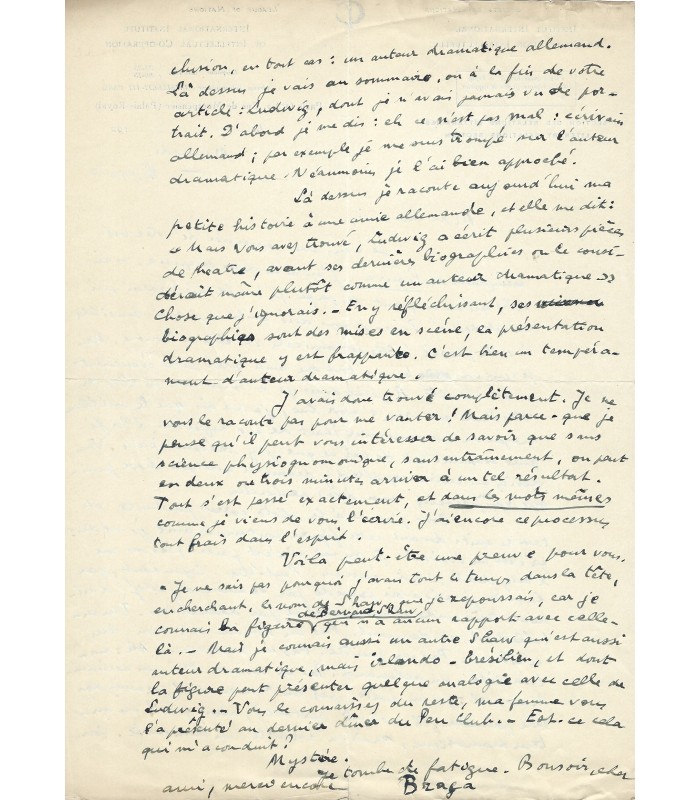 clusion, en tout cas : un auteur dramatique allemand.
Là dessus je vais au sommaire, ou à la fin de votre
article : Ludwig, dont je n'avais jamais vu de por-
trait. D'abord je me dis : eh ce n'est pas mal : écrivain
allemand ; par exemple je me suis trompé sur l'auteur
dramatique. Néanmoins je l'ai bien approché.
Là dessus je raconte aujourd'hui ma
petite histoire à une amie allemande, et elle me dit :
« Mais vous avez trouvé, Ludwig a écrit plusieurs pièces
de theatre, avant ses dernières biographies on le consi-
dérait même plutôt comme un auteur dramatique »
Chose que j'ignorais. - En y réfléchissant, ses
biographies sont des mises en scène, la présentation
dramatique y est frappante. C'est bien un tempéra-
ment d'auteur dramatique.
J'avais donc trouvé complètement. Je ne
vous le raconte pas pour me vanter ! Mais parce-que je
pense qu'il peut vous intéresser de savoir que sans
science physiognomonique, sans entraînement, on peut
en deux ou trois minutes arriver à un tel résultat.
Tout s'est passé exactement, et dans les mots mêmes
comme je viens de vous l'écrire. J'ai encore ce processus
tout frais dans l'esprit.
Voila peut-être une preuve pour vous.
- Je ne sais pas pourquoi j'avais tout le temps dans la tête,
en cherchant, le nom de Shaw, que je repoussais, car je
de Bernard Shaw
connais la figure qui n'a aucun rapport avec celle-
là. - Mais je connais aussi un autre Shaw qui est aussi
auteur dramatique, mais irlando-brésilien, et dont
la figure peut présenter quelque analogie avec celle de
Ludwig. - Vous le connaissez du reste, ma femme vous
l'a présenté au dernier dîner du Pen Club. - Est-ce cela
qui m'a conduit ?
Mystère.
Je tombe de fatigue. Bonsoir, cher
ami, merci encore
Braga